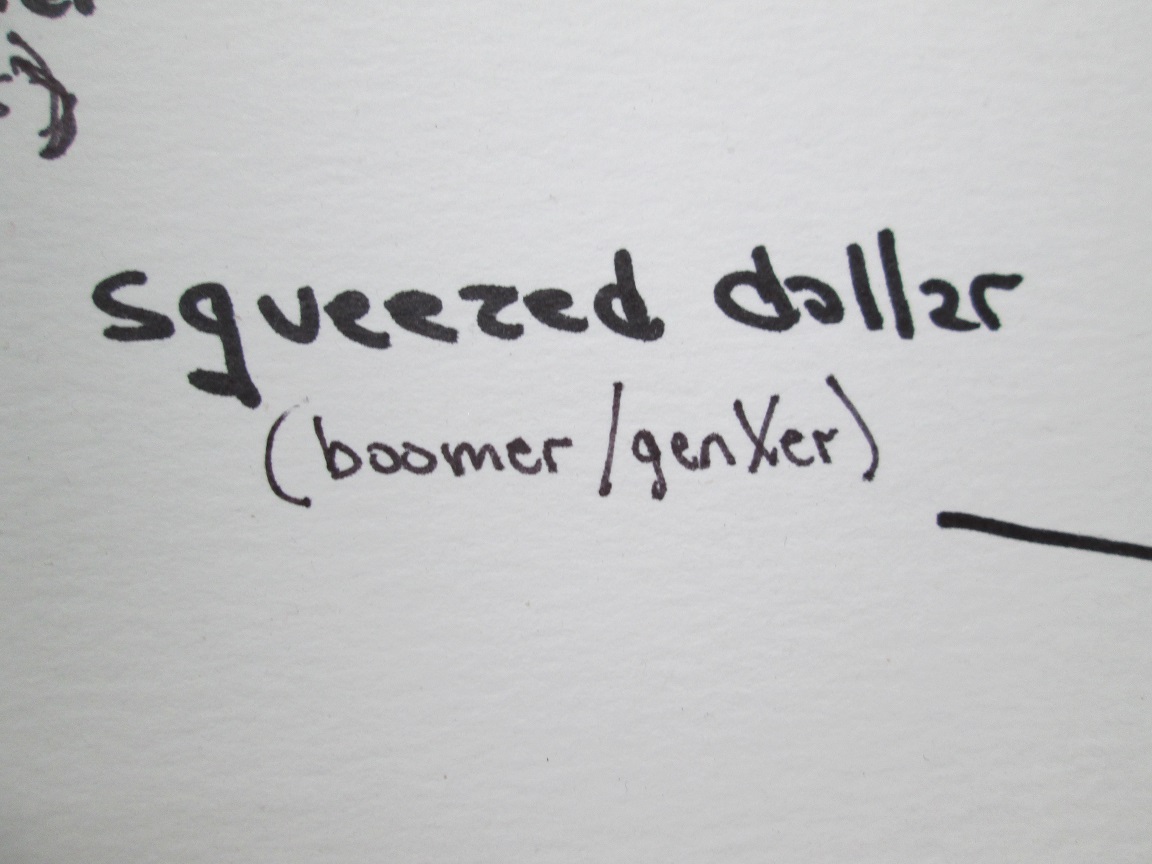 squeezed dollar
(boomer/genXer)